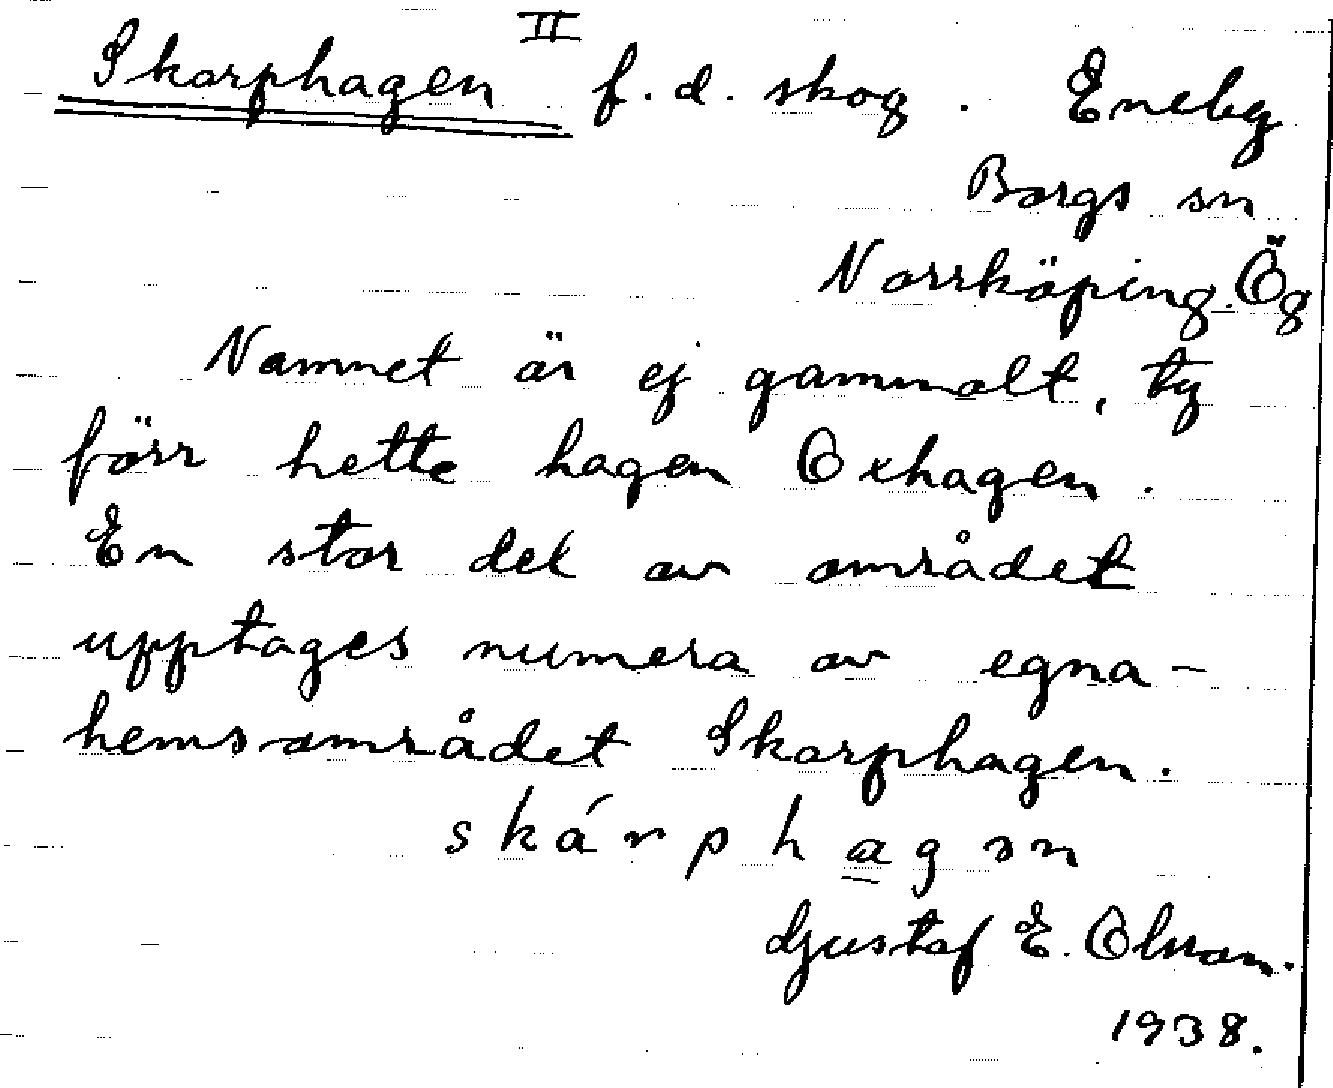 II
Skarphagen f.d. skog. Eneby
Borgs sn
Norrköping Ög
Namnet är ej gammalt, ty
förr hette hagen Oxhagen.
En stor del av området
upptages numera av egna-
hemsområdet Skarphagen.
skárphagən
Gustaf E. Olsson.
1938.